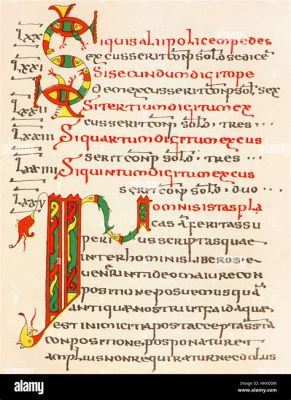 LXX Siquis alii police pedes
excusserit conp solđ sedecē
LXXI Sisecundum digitope
excusserit conp solđ sex
LXXII Sitertium digitum ex
cusserit conp solđ tres
LXXIII Siquartum digitum excus
serit conp solđ tres
LXXIIII Siquintum digitum excus
serit conp solđ duo
LXXV In omnis istas pla
cas a feritas su
perius scriptas que
inter hominis liberos e
uenerint ideo maiore con
positione posuemus qua
antiqua nostri ut faida que
est inimicitia post acceptā stā
conpositione posponatur et
amplius non requiratur nec dolus
alamy stock photo